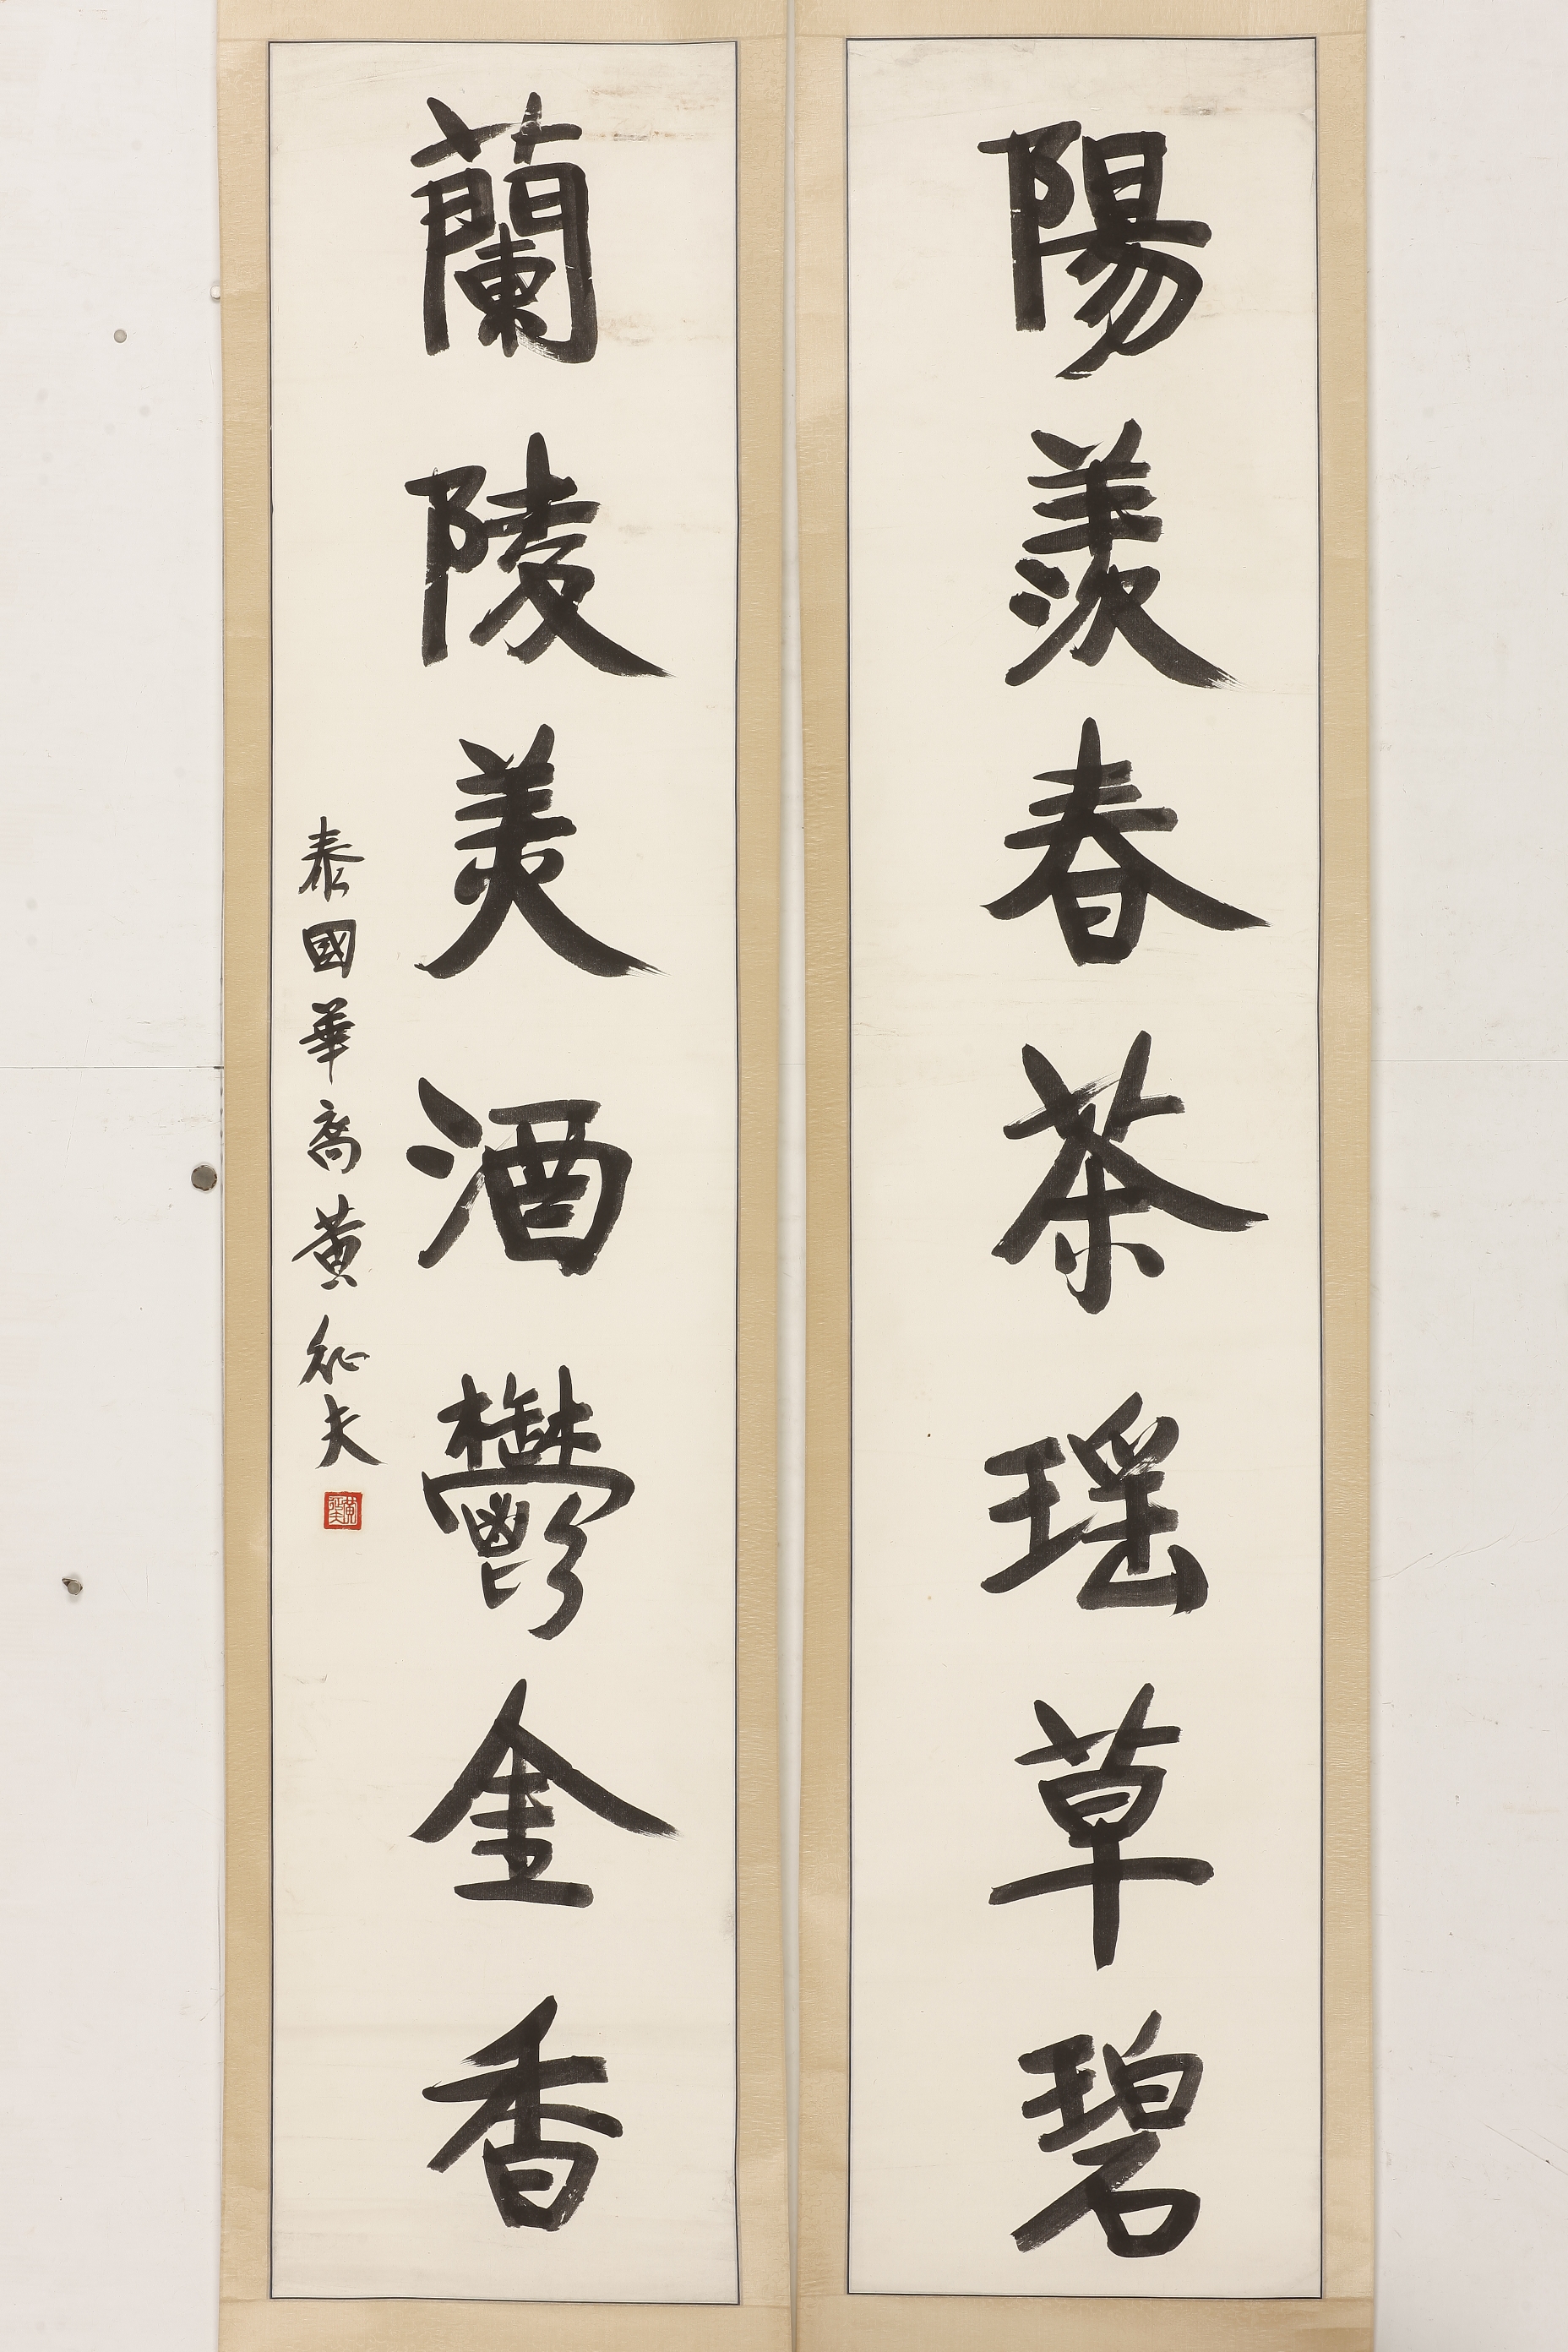 陽羨春茶瑤草碧
蘭陵美酒鬱金香
泰國華裔黃征夫